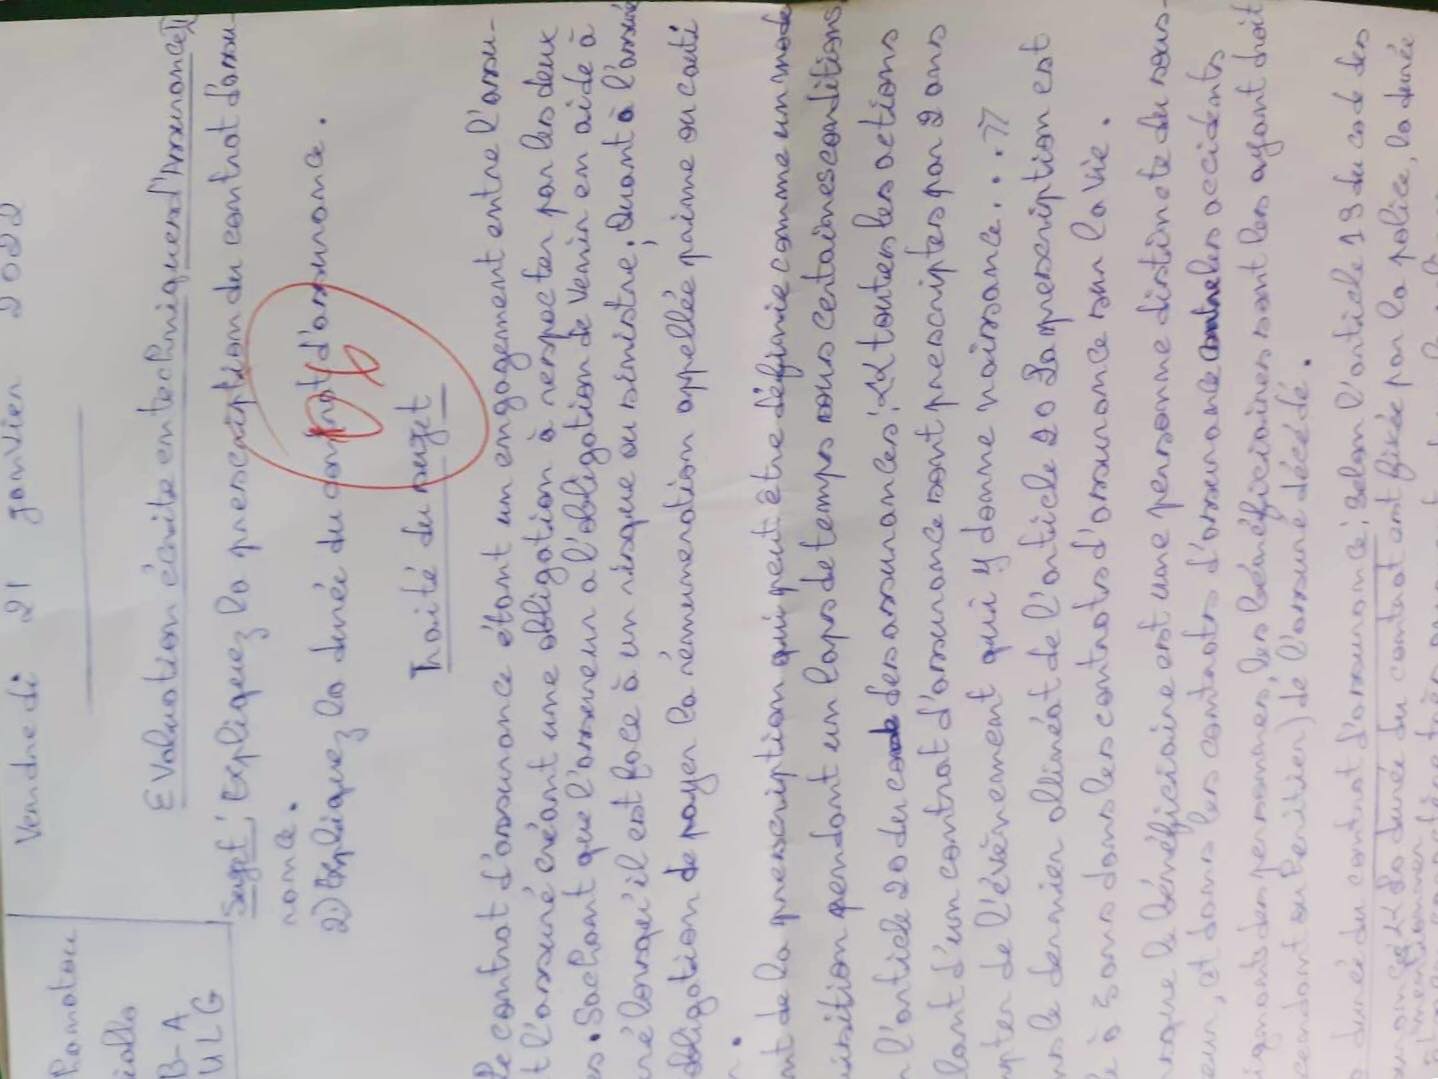 Vendredi 21 janvier 2022
Ramatou
iallo
B-A
ULG
Evaluation écrite en techniques d'Assurances
Sujet: Expliquez la prescription du contrat d'assu-
rance.
2) Expliquez la durée du contrat d'assurance.
06
Traité du sujet
Le contrat d'assurance étant un engagement entre l'assu-
t l'assuré créant une obligation à respecter par les deux
es. Sachant que l'assureur a l'obligation de venir en aide à
ré lorsqu'il est face à un risque ou sinistre, Quant à l'assuré
obligation de payer la rémunération appellée prime ou coti
n.
nt de la prescription qui peut être définie comme un mode
uisition pendant un laps de temps sous certaines conditions,
n l'article 20 du code des assurances: << toutes les actions
lant d'un contrat d'assurance sont prescriptes par 2 ans
pter de l'évènement qui y donne naissance...>>
ns le dernier allinéat de l'article 20 la prescription est
e à 5 ans dans les contrats d'assurance sur la vie.
sque le bénéficiaire est une personne distincte du sous-
eur, et dans les contrats d'assurance contre les accidents
ignants des personnes, les bénéficiaires sont les ayant droit
cendant ou héritier) de l'assuré décédé.
durée du contrat d'assurance: Selon l'article 19 du code des
surances << La durée du contrat est fixée par la police, la durée
mentionner